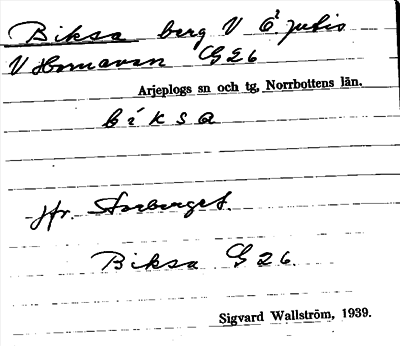 Biksa berg V Ö. jutis
V Hornavan G 26
Arjeplogs sn och tg, Norrbottens län.
b i k s a
jfr.
Biksa G 26.
Sigvard Wallström, 1939.